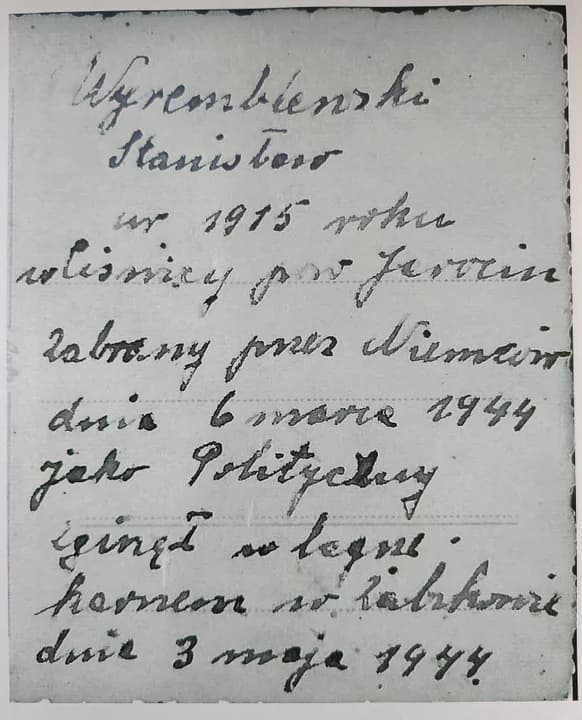 Wyrembleński
Stanisław
ur 1915 roku
w Lisnicy pow Jarocin
Zabrany przez Niemców
dnia 6 marca 1944
jako Polityczny
zginął w
karnem w Żabikowie
dnia 3 maja 1944